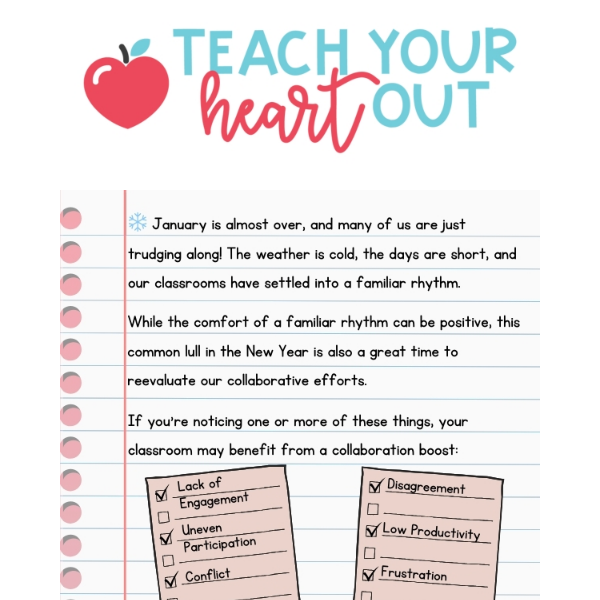 TEACH YOUR
heart OUT
January is almost over, and many of us are just
trudging along! The weather is cold, the days are short, and
our classrooms have settled into a familiar rhythm.
While the comfort of a familiar rhythm can be positive, this
common lull in the New Year is also a great time to
reevaluate our collaborative efforts.
If you're noticing one or more of these things, your
classroom may benefit from a collaboration boost:
Lack of
Engagement
Uneven
Participation
Conflict
Disagreement
Low Productivity
Frustration